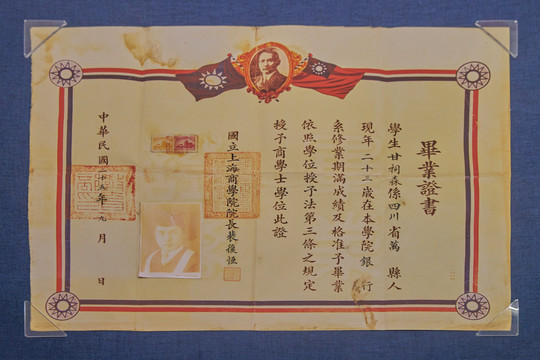 畢業證書
學生甘祠森係四川省萬縣人
現年二十三歲在本學院銀行
系修業期滿成績及格准予畢業
依照學位授予法第三條之規定
授予商學士學位此證
國立上海商學院院長裴復恒
中華民國二十五年九月 日